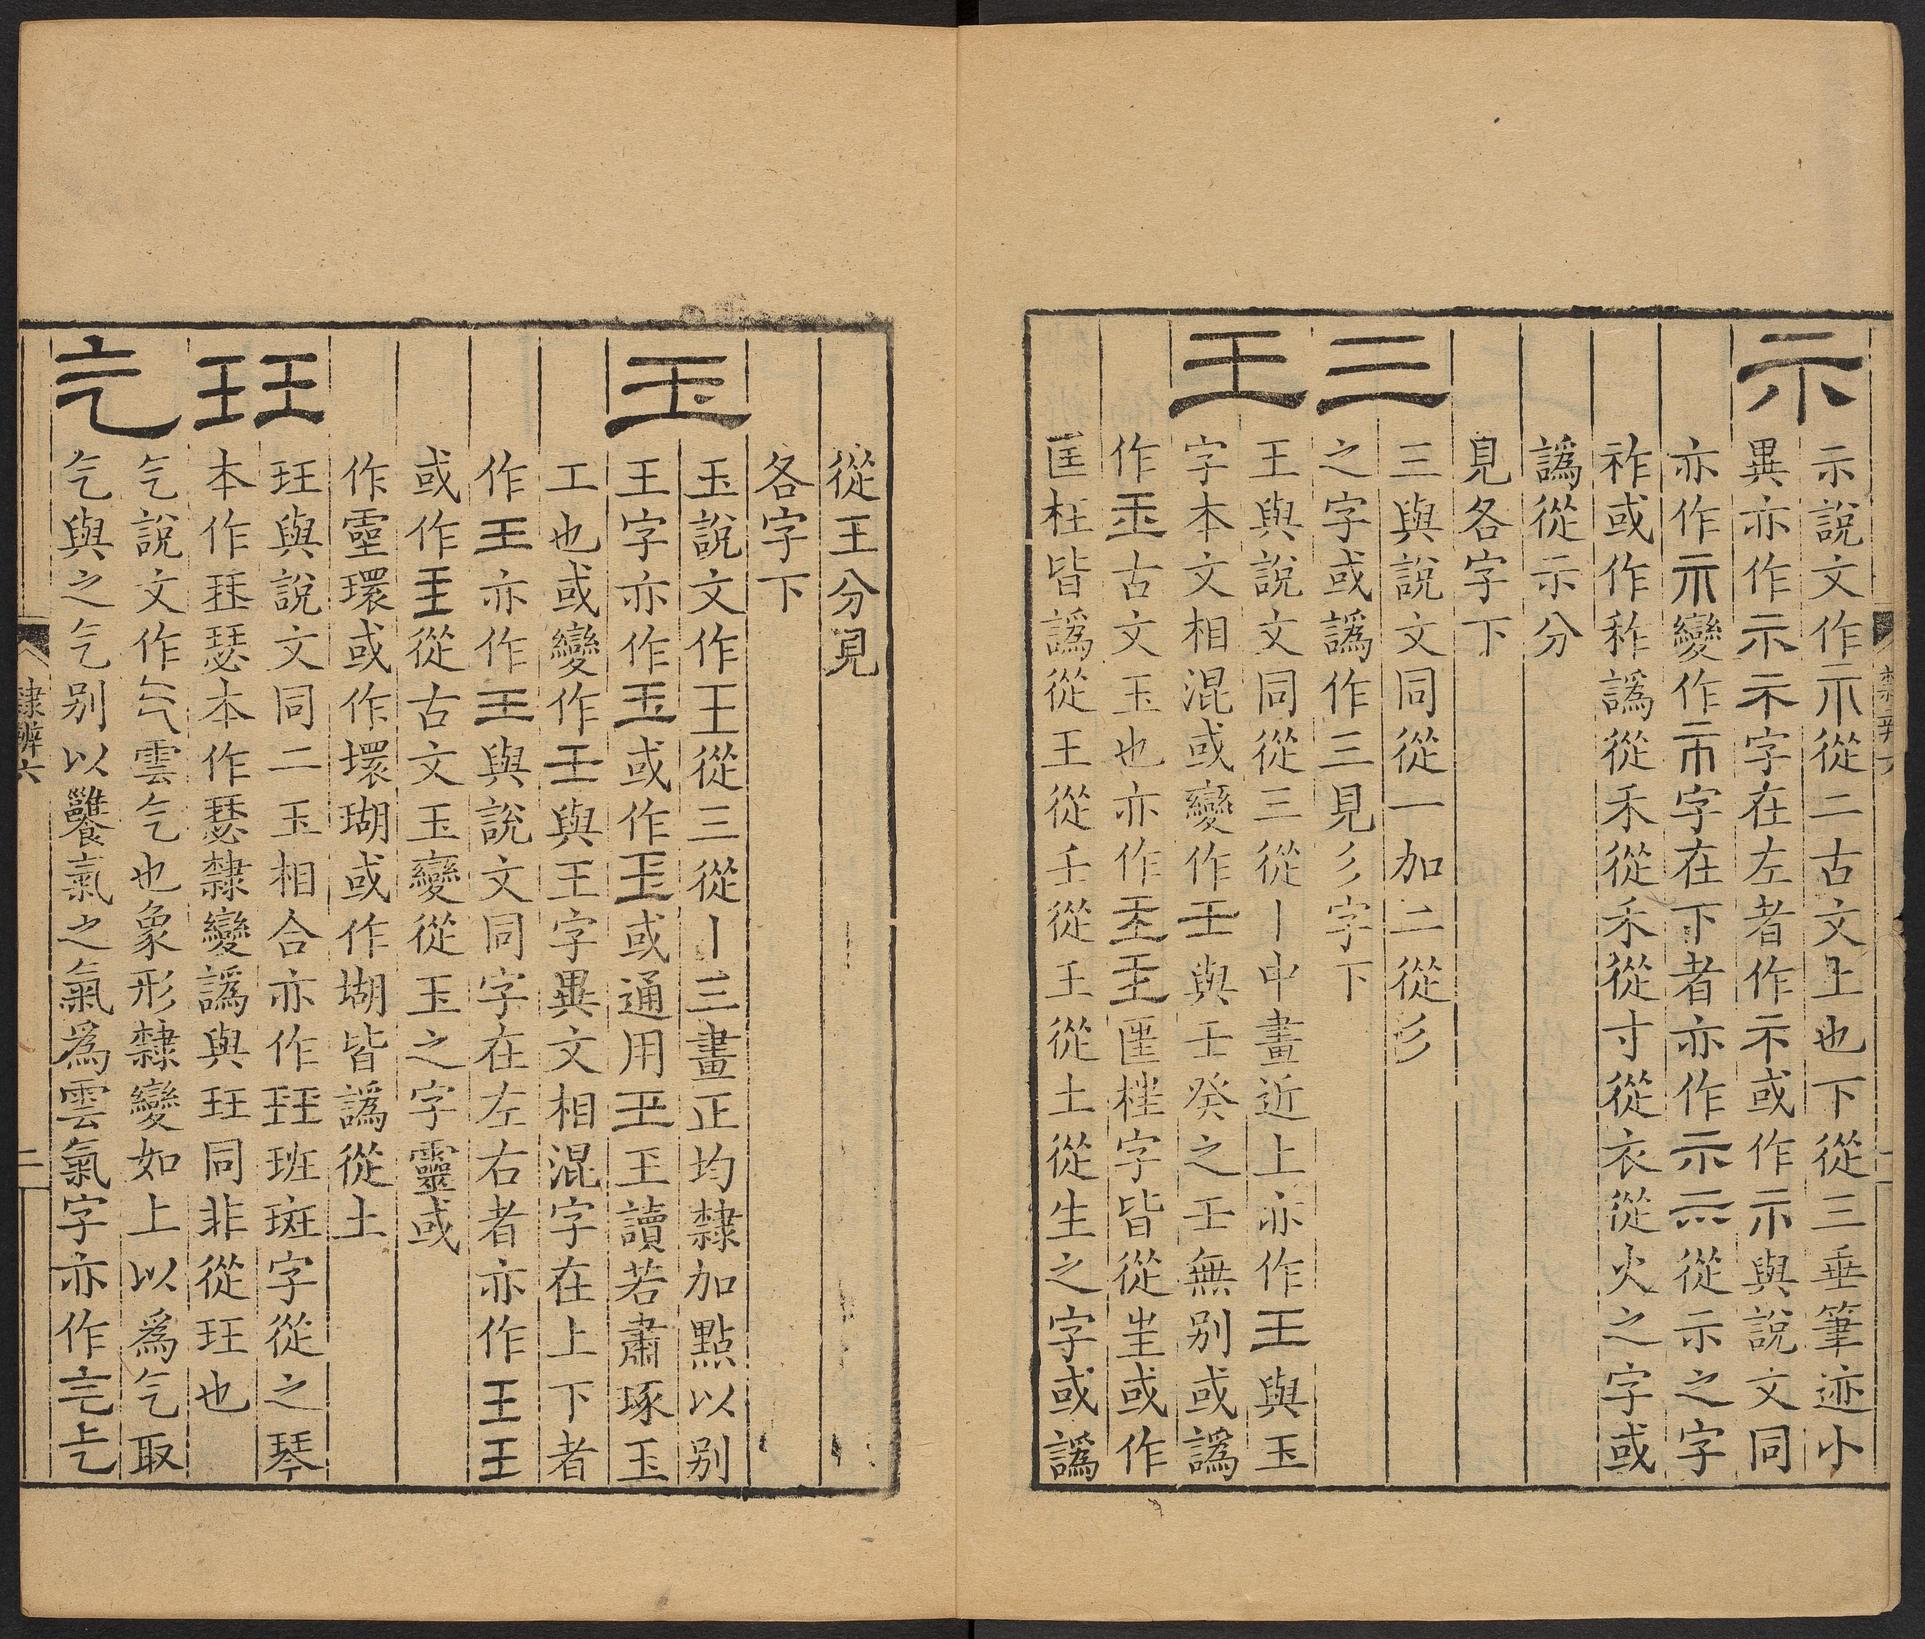 示
示說文作示從二古文上也下從三垂筆迹小
異亦作示示字在左者作示或作示與說文同
亦作示變作示字在下者亦作示示從示之字
祚或作秨譌從禾從禾從寸從衣從火之字或
譌從示分
見各字下
三
三與說文同從一加二從彡
之字或譌作三見彡字下
王
王與說文同從三從丨中畫近上亦作王與玉
字本文相混或變作壬與壬癸之壬無别或譌
作玉古文玉也亦作匡桎字皆從㞷或作
匡枉皆譌從王從壬從王從土從生之字或譌
從王分見
各字下
玉
玉說文作王從三從丨三畫正均隸加點以别
王字亦作玉或作玉或通用玊玊讀若肅琢玉
工也或變作壬與王字異文相混字在上下者
作王亦作王與說文同字在左右者亦作王王
或作𤣩從古文玉變從玉之字靈或
作𤫊環或作壞瑚或作堋皆譌從土
玨
玨與說文同二玉相合亦作玨班斑字從之琴
本作珡瑟本作瑟隸變譌與玨同非從玨也
气
气說文作气雲气也象形隸變如上以爲气取
气與之气别以饔氣之氣爲雲氣字亦作
隸辨六
二